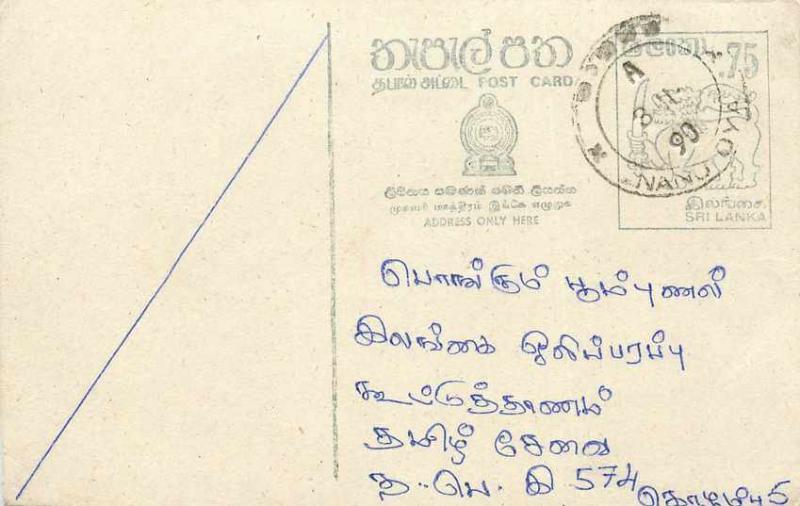 තැපැල් පත
தபால் அட்டை POST CARD
ලිපිනය පමණක් මෙහි ලියන්න
முகவரி மாத்திரம் இங்கே எழுதுக
ADDRESS ONLY HERE
A
90
NANU OYA
.75
இலங்கை
SRI LANKA
பொங்கும் பூம்புனல்
இலங்கை ஒலிபரப்பு
கூட்டுத்தாணம்
தமிழ் சேவை
த. பெ. இ 574
கொழும்பு 5